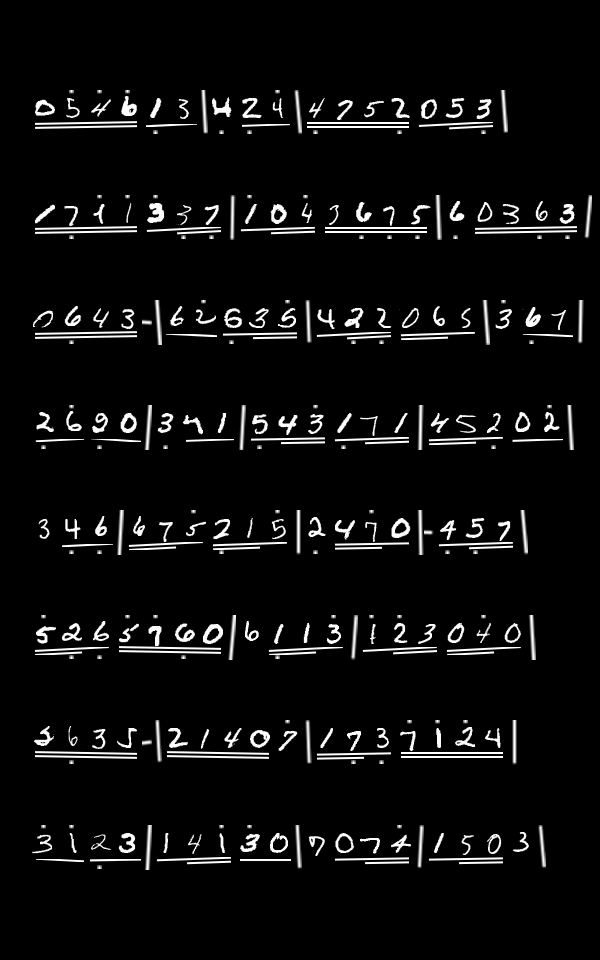 0 5 4 6 1 3 | 4 2 4 | 4 7 5 2 0 5 3 |
1 7 1 1 3 3 7 | 1 0 4 3 6 7 5 | 6 0 3 6 3 |
0 6 4 3 - | 6 2 5 3 5 | 4 2 2 0 6 5 | 3 6 7 |
2 6 9 0 | 3 4 1 | 5 4 3 1 7 1 | 4 5 2 0 2 |
3 4 6 | 6 7 5 2 1 5 | 2 4 7 0 | - 4 5 7 |
5 2 6 5 7 6 0 | 6 1 1 3 | 1 2 3 0 4 0 |
5 6 3 5 - | 2 1 4 0 7 | 1 7 3 7 1 2 4 |
3 1 2 3 | 1 4 1 3 0 | 7 0 7 4 | 1 5 0 3 |